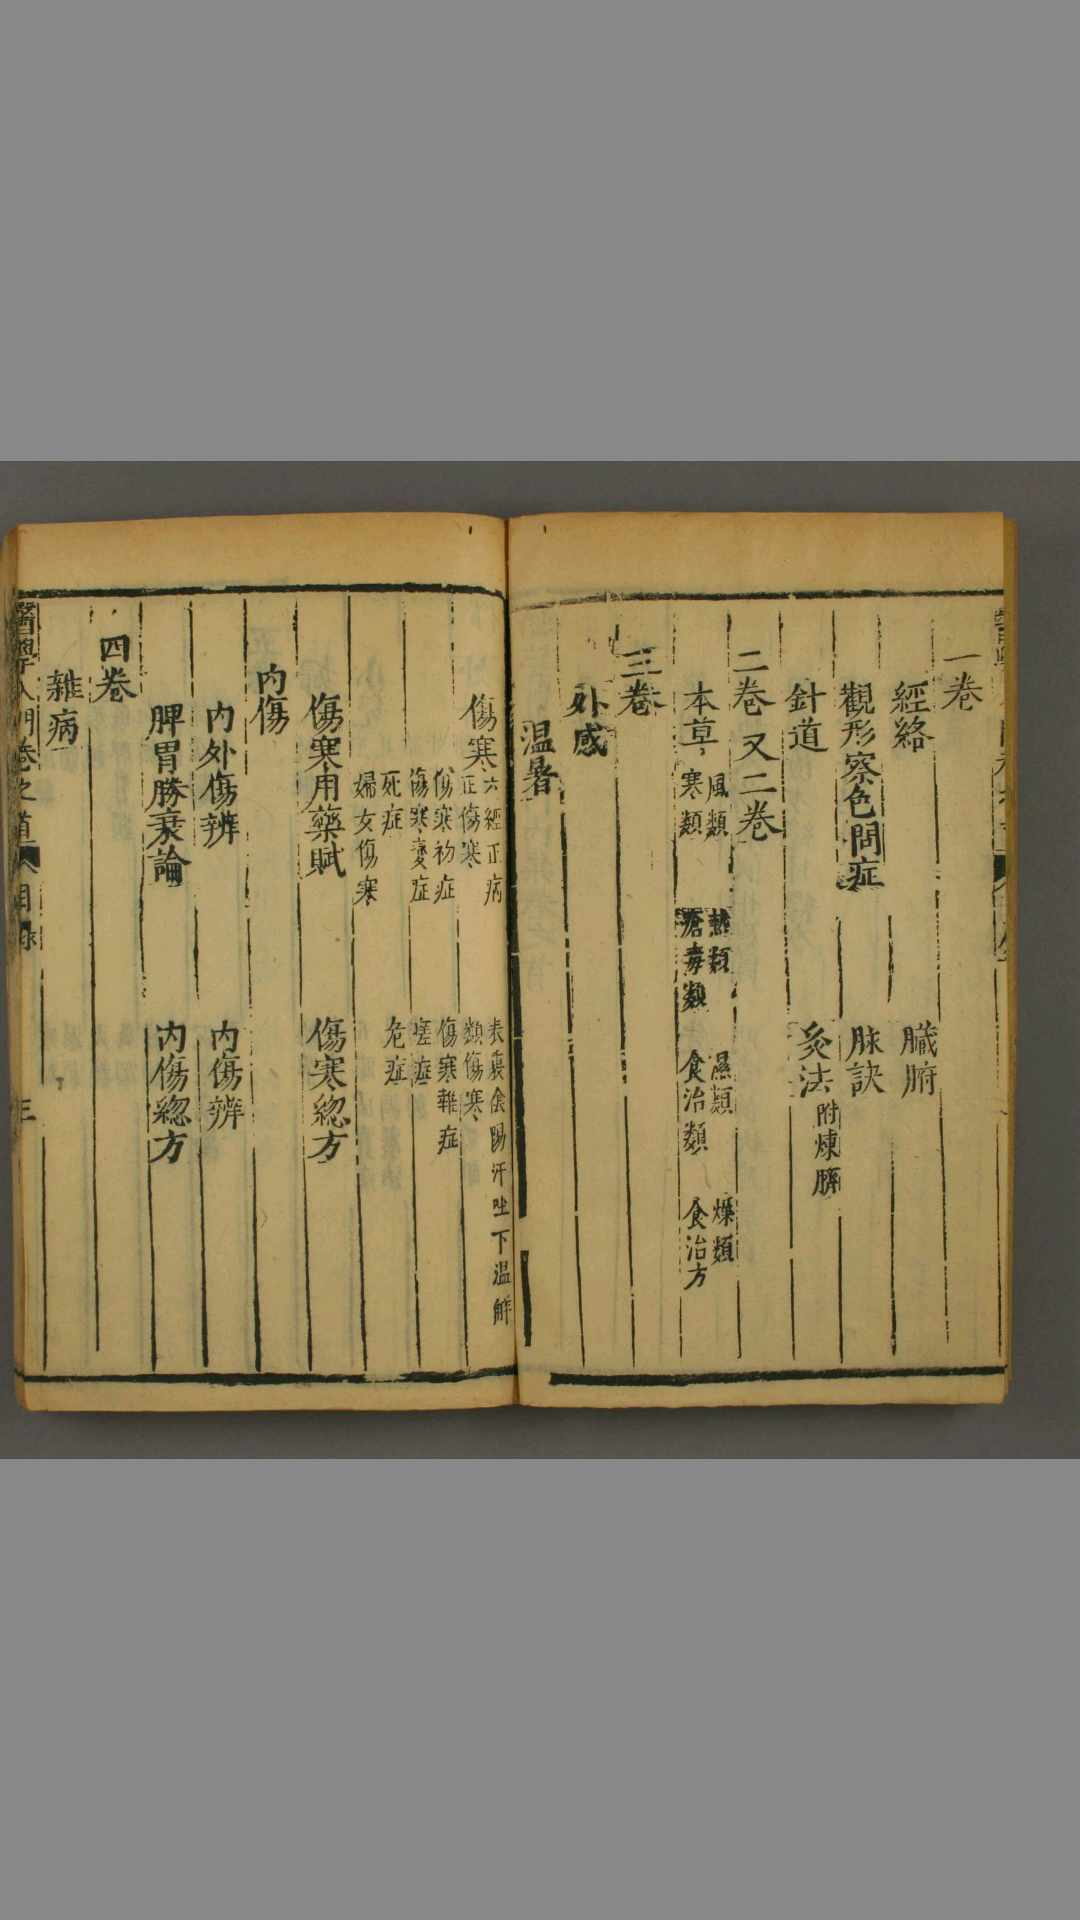 一卷
經絡 臟腑
觀形察色問症 脉訣
針道 灸法附煉臍
二卷 又二卷
本草 風類 熱類 濕類 燥類
寒類 瘡毒類 食治類 食治方
三卷
外感
温暑
傷寒 六經正病 表裏陰陽汗吐下温解
正傷寒 類傷寒
傷寒初症 傷寒雜症
傷寒變症 瘥症
死症 危症
婦女傷寒
傷寒用藥賦 傷寒緫方
内傷
内外傷辨 内傷辨
脾胃勝衰論 内傷緫方
四卷
雜病
醫學入門卷之首 目録 三